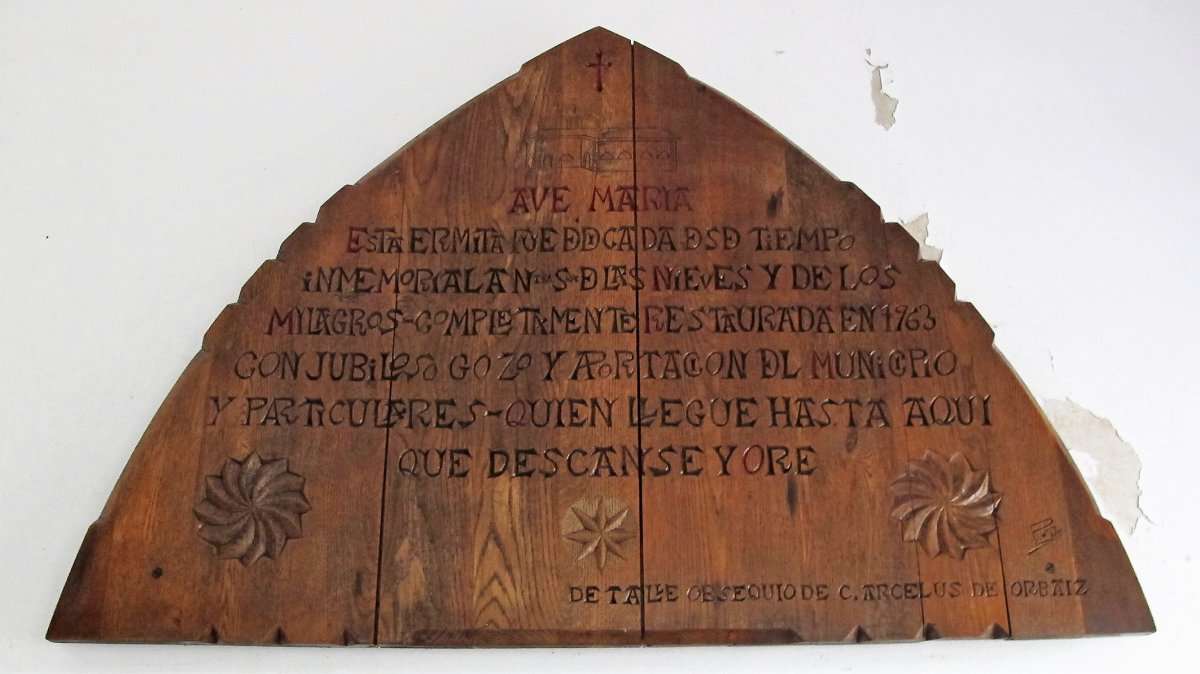 AVE MARIA
ESTA ERMITA FUE DEDICADA DESDE TIEMPO
INMEMORIAL A NTRA SRA DE LAS NIEVES Y DE LOS
MILAGROS-COMPLETAMENTE RESTAURADA EN 1963
CON JUBILOSO GOZO Y APORTACION DEL MUNICIPIO
Y PARTICULARES-QUIEN LLEGUE HASTA AQUI
QUE DESCANSE Y ORE
DE TALLE OBSEQUIO DE C. ARCELUS DE ORBAIZ